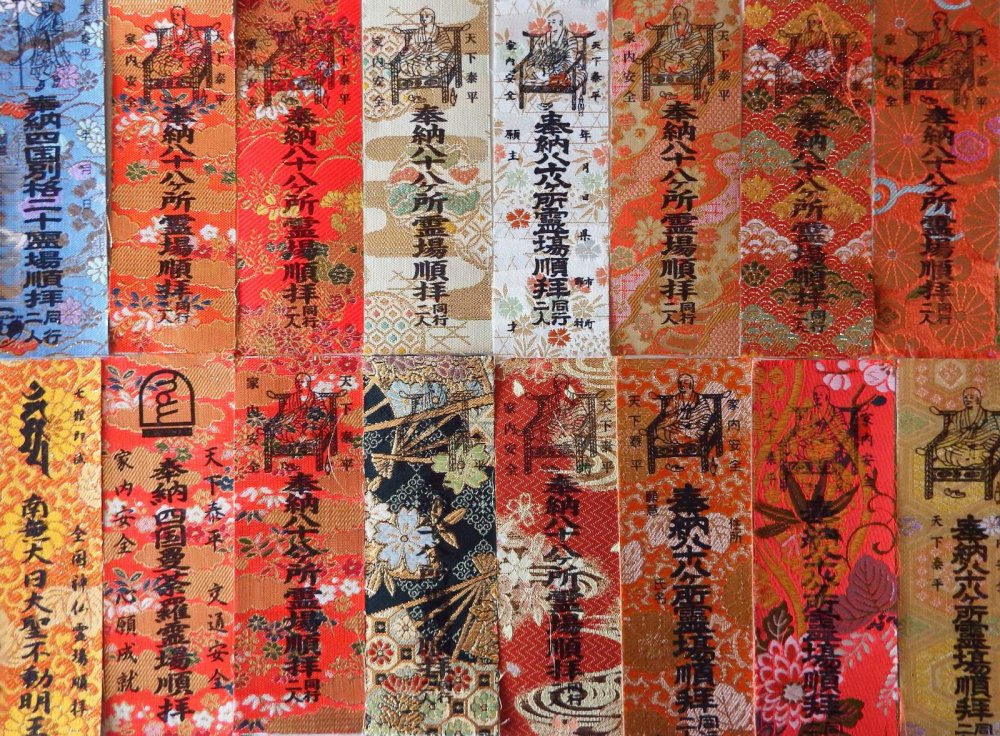 奉納四国別格二十霊場順拝
同行二人
家内安全
天下泰平
奉納八十八ヶ所霊場順拝
同行二人
家内安全
天下泰平
奉納八十八ヶ所霊場順拝
同行二人
家内安全
天下泰平
奉納八十八ヶ所霊場順拝
同行二人
家内安全
天下泰平
奉納八十八ヶ所霊場順拝
同行二人
年月日
県
願主
家内安全
天下泰平
奉納八十八ヶ所霊場順拝
同行二人
家内安全
天下泰平
奉納八十八ヶ所霊場順拝
同行二人
家内安全
天下泰平
奉納八十八ヶ所霊場順拝
同行二人
全国神仏霊場順拝
南無大日大聖不動明王
天下泰平 交通安全
奉納四国曼荼羅霊場順拝
家内安全 心願成就
家内安全
天下泰平
奉納八十八ヶ所霊場順拝
同行二人
家内安全
天下泰平
奉納八十八ヶ所霊場順拝
同行二人
家内安全
天下泰平
奉納八十八ヶ所霊場順拝
同行二人
家内安全
奉納八十八ヶ所霊場順拝
同行二人
天下泰平
奉納八十八ヶ所霊場順拝